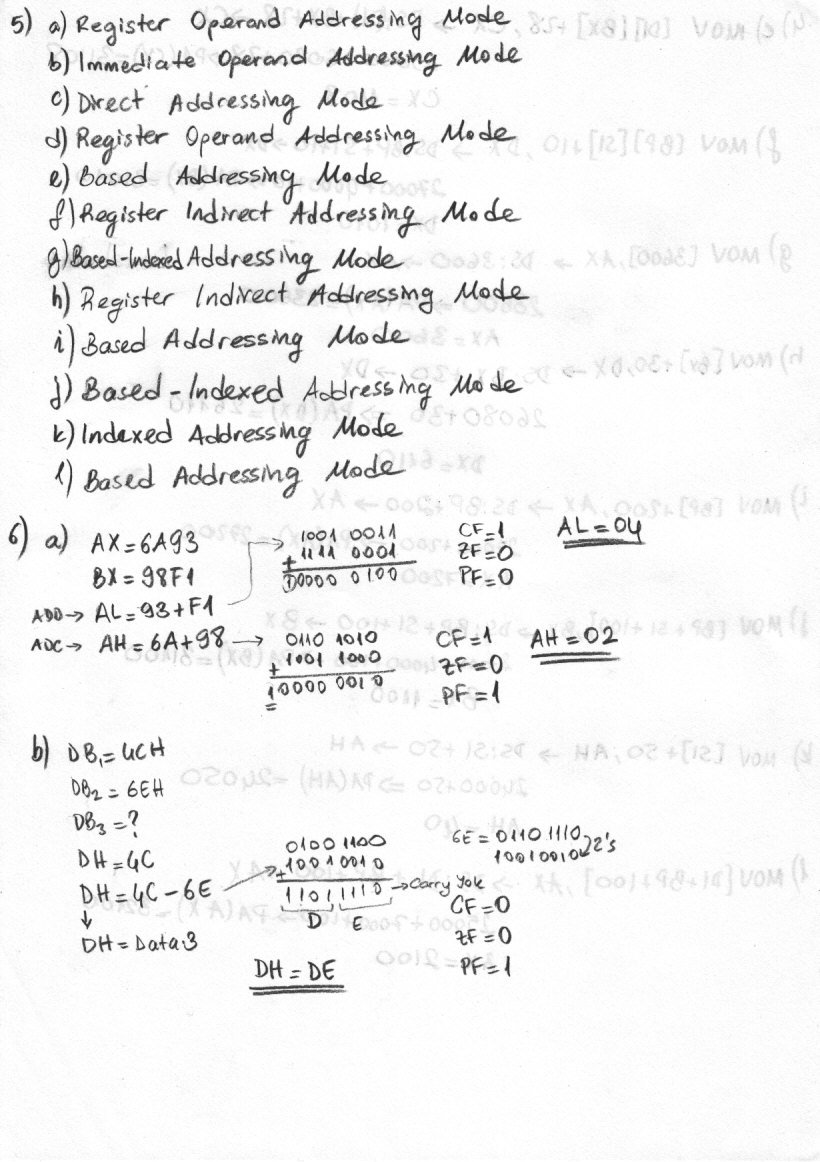 5) a) Register Operand Addressing Mode
b) Immediate Operand Addressing Mode
c) Direct Addressing Mode
d) Register Operand Addressing Mode
e) Based Addressing Mode
f) Register Indirect Addressing Mode
g) Based-Indexed Addressing Mode
h) Register Indirect Addressing Mode
i) Based Addressing Mode
j) Based-Indexed Addressing Mode
k) Indexed Addressing Mode
l) Based Addressing Mode
6) a) AX=6A93
BX=98F1
ADD→ AL=93+F1 →
1001 0011
+ 1111 0001
0000 0100
CF=1
ZF=0
PF=0
AL=04
ADC→ AH=6A+98 →
0110 1010
+ 1001 1000
10000 0010
CF=1
ZF=0
PF=1
AH=02
b) DB1=4CH
DB2=6EH
DB3=?
DH=4C
DH=4C-6E →
↓
DH=Data3
0100 1100
+ 1001 0010
1101 1110 → carry yok
D E
DH=DE
6E=0110 1110
10010010 2's
CF=0
ZF=0
PF=1